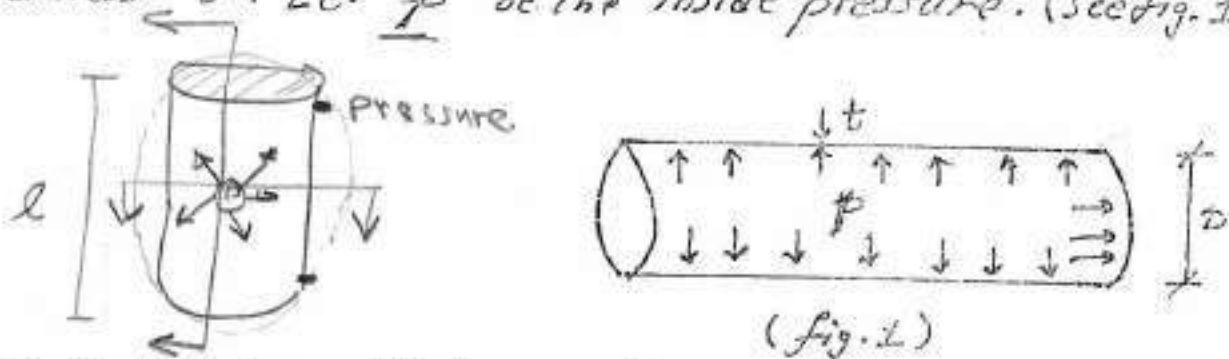 be the inside pressure. (See fig. 1
pressure
l
t
p
D
(fig. 1)